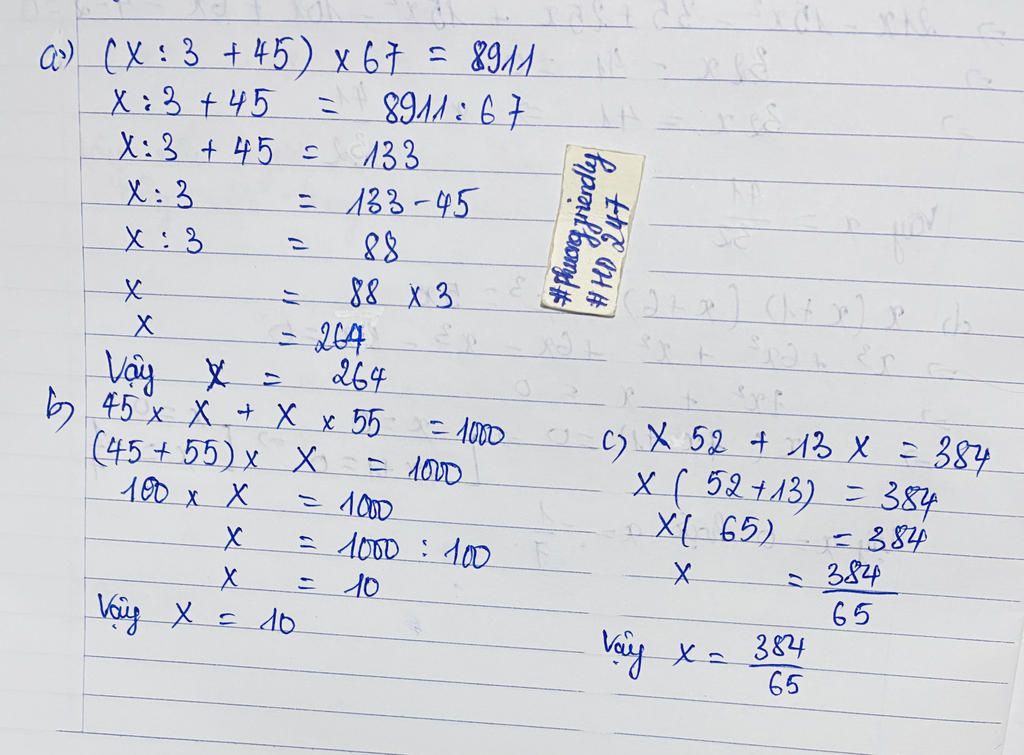 a) (x : 3 + 45) x 67 = 8911
x : 3 + 45 = 8911 : 67
x : 3 + 45 = 133
x : 3 = 133 - 45
x : 3 = 88
x = 88 x 3
x = 264
Vậy x = 264
b) 45 x X + X x 55 = 1000
(45 + 55) x X = 1000
100 x X = 1000
x = 1000 : 100
x = 10
Vậy X = 10
c) X 52 + 13 X = 384
X ( 52 + 13) = 384
X ( 65) = 384
x = 384/65
Vậy x = 384/65
#phuongfriendly
#HD 247